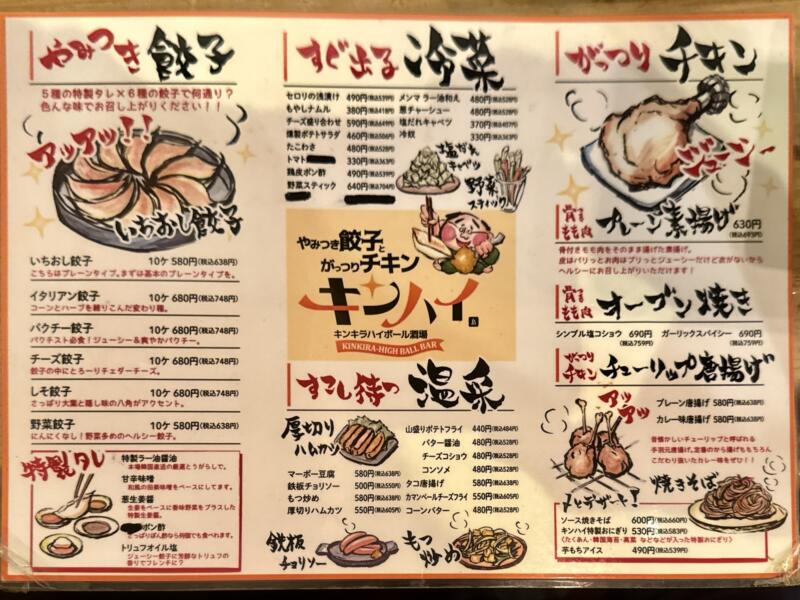 やみつき餃子
５種の特製タレ×６種の餃子で何通り？
色んな味でお召し上がりください！！
アッアッ!!
いちおし餃子
いちおし餃子 10ケ 580円(税込638円)
こちらはプレーンタイプ。まずは基本のプレーンタイプを。
イタリアン餃子 10ケ 680円(税込748円)
コーンとハーブを練りこんだ変わり種。
パクチー餃子 10ケ 680円(税込748円)
パクチスト必食！ジューシー＆爽やかパクチー。
チーズ餃子 10ケ 680円(税込748円)
餃子の中にとろーりチェダーチーズ。
しそ餃子 10ケ 680円(税込748円)
さっぱり大葉と隠し味の八角がアクセント。
野菜餃子 10ケ 580円(税込638円)
にんにくなし！野菜多めのヘルシー餃子。
特製タレ
特製ラー油醤油
本場韓国直送の厳選とうがらしで。
甘辛味噌
和風の田楽味噌をベースにしてます。
葱生姜醤
生姜をベースに香味野菜をプラスした
特製生姜醤。
ポン酢
さっぱりぽん酢なら何個でも食べれます。
トリュフオイル塩
ジューシー餃子に芳醇なトリュフの
香りでフレンチに？
すぐ出る冷菜
セロリの浅漬け 490円(税込539円)
もやしナムル 380円(税込418円)
チーズ盛り合わせ 590円(税込649円)
燻製ポテトサラダ 460円(税込506円)
たこわさ 480円(税込528円)
トマト 330円(税込363円)
鶏皮ポン酢 490円(税込539円)
野菜スティック 640円(税込704円)
メンマ ラー油和え 480円(税込528円)
葱チャーシュー 480円(税込528円)
塩だれキャベツ 370円(税込407円)
冷奴 330円(税込363円)
塩だれ
キャベツ
野菜
スティック
やみつき餃子と
がっつりチキン
キンハイ
キンキラハイボール酒場
KINKIRA-HIGH BALL BAR
すこし待つ温菜
厚切り
ハムカツ
マーボー豆腐 580円(税込638円)
鉄板チョリソー 500円(税込550円)
もつ炒め 580円(税込638円)
厚切りハムカツ 550円(税込605円)
山盛りポテトフライ 440円(税込484円)
バター醤油 480円(税込528円)
チーズコショウ 480円(税込528円)
コンソメ 480円(税込528円)
タコ唐揚げ 580円(税込638円)
カマンベールチーズフライ 550円(税込605円)
コーンバター 480円(税込528円)
鉄板
チョリソー
もつ
炒め
がっつりチキン
ジューシー
骨付もも肉 プレーン素揚げ 630円
(税込693円)
骨付きモモ肉をそのまま揚げた素揚げ。
皮はパリっとお肉はプリっとジューシーだけど衣がないから
ヘルシーにお召し上がりいただけます！
骨付もも肉 オーブン焼き
シンプル塩コショウ 690円 ガーリックスパイシー 690円
(税込759円) (税込759円)
がっつりチキン チューリップ唐揚げ
アッアッ
プレーン唐揚げ 580円(税込638円)
カレー味唐揚げ 580円(税込638円)
昔懐かしいチューリップと呼ばれる
手羽元唐揚げ。定番のから揚げももちろん
こだわり抜いたカレー味をぜひ！！
焼きそば
〆とデザート！
ソース焼きそば 600円(税込660円)
キンハイ特製おにぎり 530円(税込583円)
(たくあん・韓国海苔・高菜 などなどが入った特製おにぎり)
芋もちアイス 490円(税込539円)